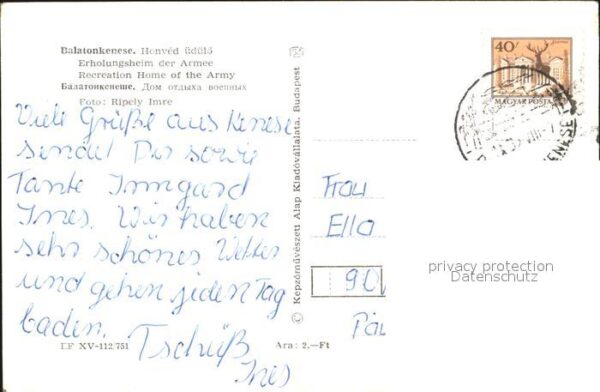 Balatonkenese. Honvéd üdülő
Erholungsheim der Armee
Recreation Home of the Army
Балатонкенеше. Дом отдыха военных
Foto: Ripely Imre
Viele Grüße aus Kenese
sendet Dir sowie
Tante Irmgard
Ines. Wir haben
sehr schönes Wetter
und gehen jeden Tag
baden.
Tschüß
Ines
EF XV-112/751
Ara: 2.—Ft
© Képzőművészeti Alap Kiadóvállalata, Budapest
40f
MAGYAR POSTA
KENESE
Frau
Ella
90
privacy protection
Datenschutz